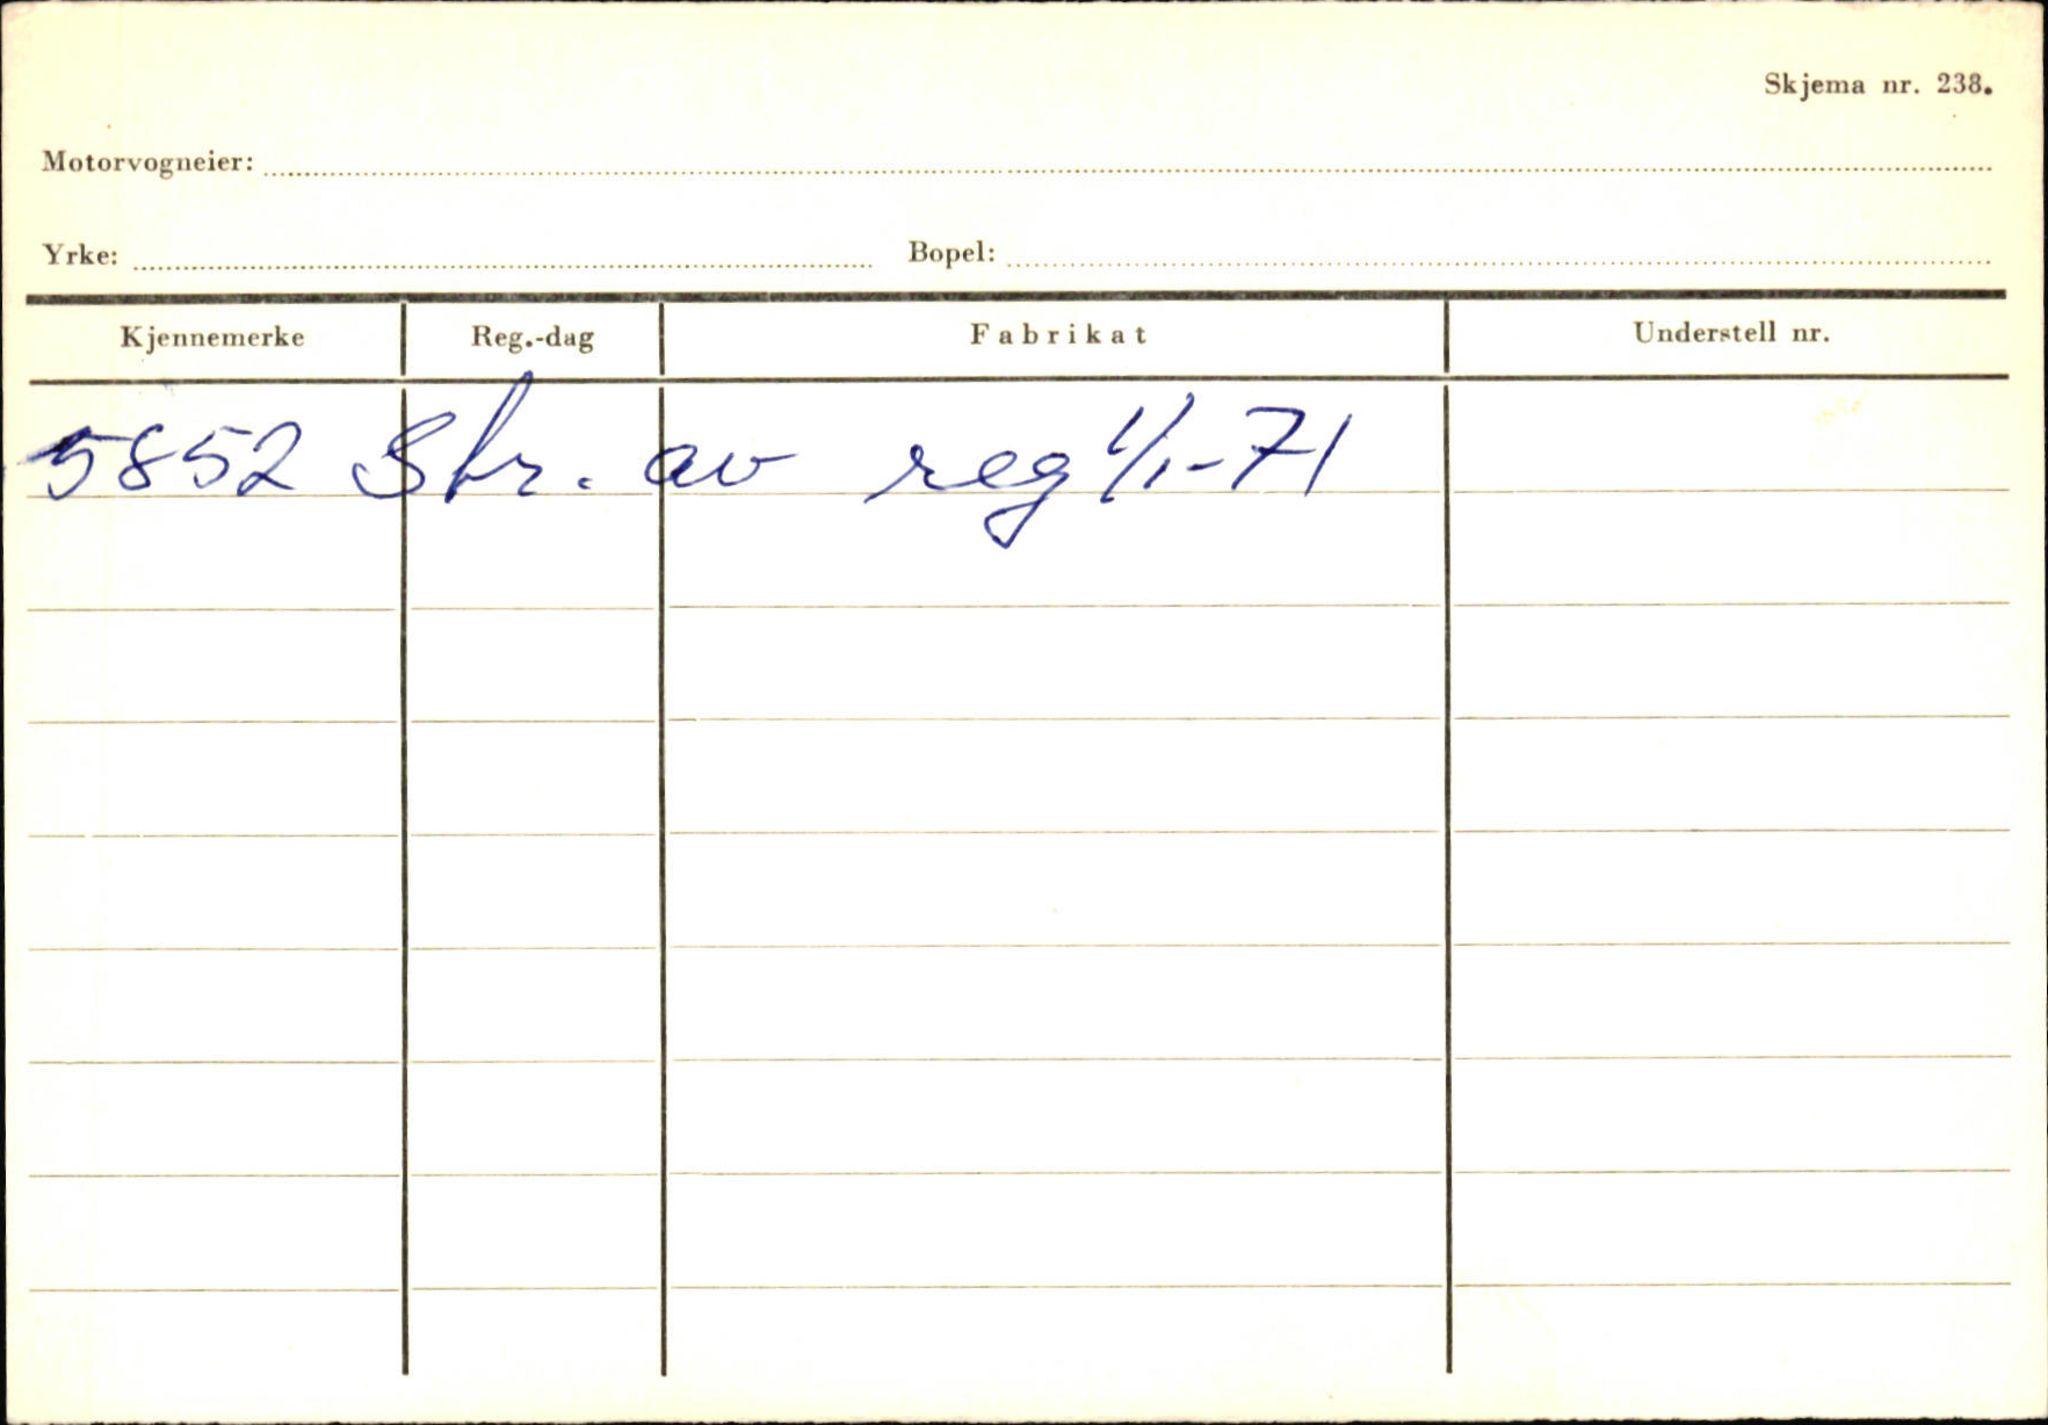 Skjema nr. 238.
Motorvogneier:
Yrke: Bopel:
Kjennemerke Reg.-dag Fabrikat Understell nr.
5852 Str. av reg 1/1-71